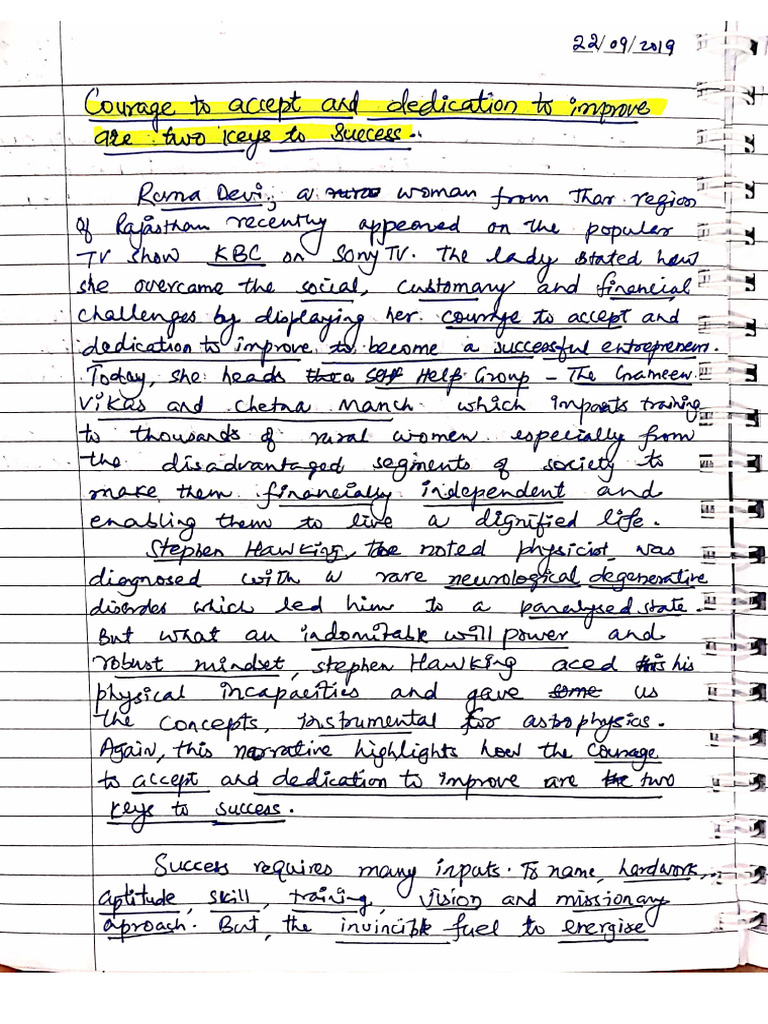 22/09/2019
Courage to accept and dedication to improve
are two keys to success.
Ruma Devi, a woman from Thar region
of Rajasthan recently appeared on the popular
TV show KBC on Sony TV. The lady stated how
she overcame the social, customary and financial
challenges by displaying her courage to accept and
dedication to improve to become a successful entrepreneur.
Today, she heads Self Help Group - The Grameen
Vikas and Chetna Manch which imparts training
to thousands of rural women especially from
the disadvantaged segments of society to
make them financially independent and
enabling them to live a dignified life.
Stephen Hawking, the noted physicist was
diagnosed with a rare neurological degenerative
disorder which led him to a paralysed state.
But what an indomitable will power and
robust mindset, Stephen Hawking aced his
physical incapacities and gave us
the concepts, instrumental for astrophysics.
Again, this narrative highlights how the courage
to accept and dedication to improve are two
keys to success.
Success requires many inputs. To name, hardwork,
aptitude, skill, training, vision and missionary
aproach. But, the invincible fuel to energise